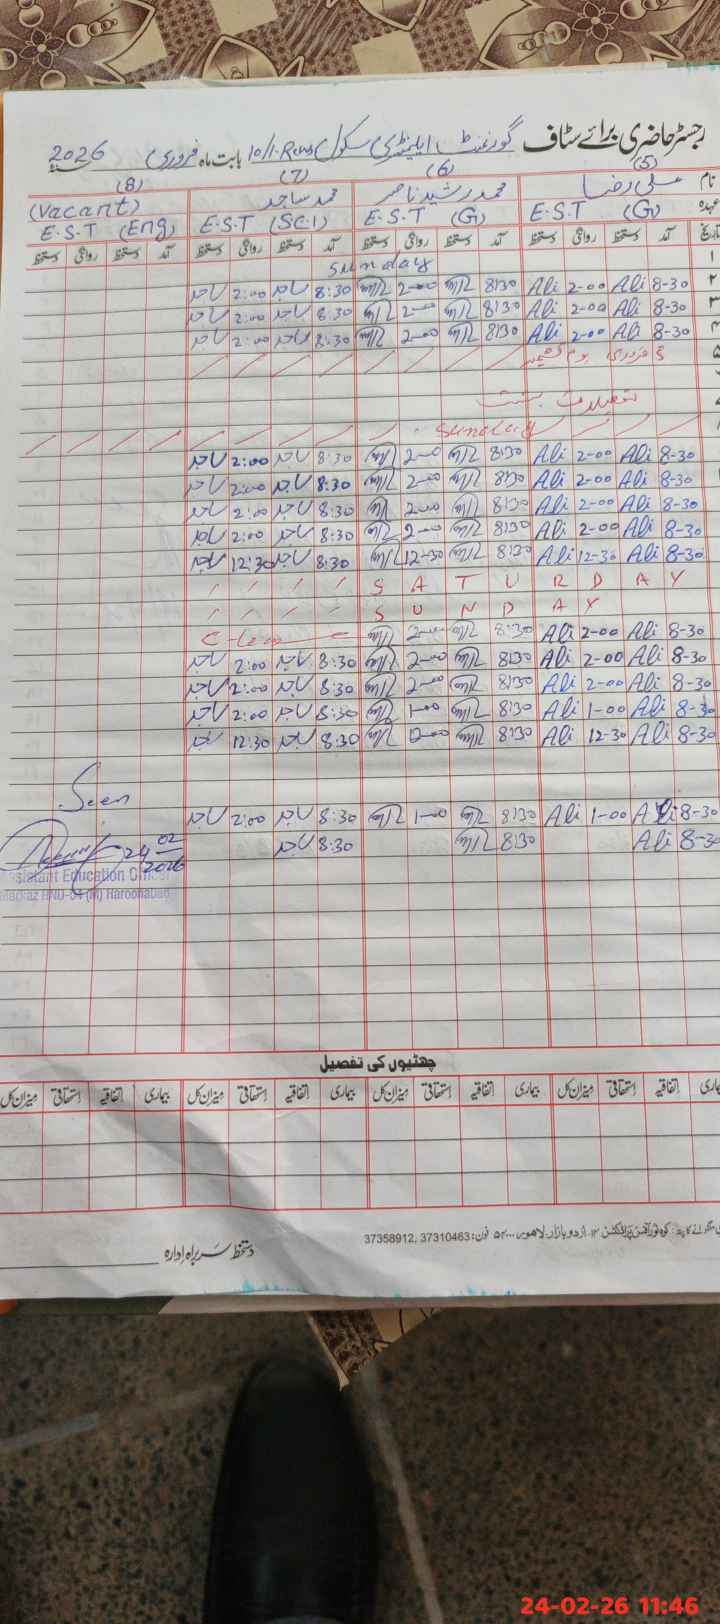 رجسٹر حاضری برائے سٹاف گورنمنٹ ایلیمنٹری سکول 10/1-R بابت ماہ فروری 2026
(5) (6) (7) (8)
نام علی رضا محمد رشید ناصر محمد ساجد (Vacant)
عہدہ E.S.T (G) E.S.T (G) E.S.T (SC-I) E.S.T (Eng)
تاریخ آمد دستخط روانگی دستخط آمد دستخط روانگی دستخط آمد دستخط روانگی دستخط آمد دستخط روانگی دستخط
۱ Sunday
۲ 8-30 Ali 2-00 Ali 8:30 2-00 8:30 ساجد 2:00 ساجد
۳ 8-30 Ali 2-00 Ali 8:30 2-00 8:30 ساجد 2:00 ساجد
۴ 8-30 Ali 2-00 Ali 8:30 2-00 8:30 ساجد 2:00 ساجد
۵ 5 فروری یوم کشمیر
Sunday
8-30 Ali 2-00 Ali 8:30 2-00 8:30 ساجد 2:00 ساجد
8-30 Ali 2-00 Ali 8:30 2-00 8:30 ساجد 2:00 ساجد
8-30 Ali 2-00 Ali 8:30 2-00 8:30 ساجد 2:00 ساجد
8-30 Ali 2-00 Ali 8:30 2-00 8:30 ساجد 2:00 ساجد
8-30 Ali 12-30 Ali 8:30 12-30 8:30 ساجد 12:30 ساجد
SATURDAY
SUNDAY
8-30 Ali 2-00 Ali 8:30 2-00 C-Leave
8-30 Ali 2-00 Ali 8:30 2-00 8:30 ساجد 2:00 ساجد
8-30 Ali 2-00 Ali 8:30 2-00 8:30 ساجد 2:00 ساجد
8-30 Ali 1-00 Ali 8:30 1-00 8:30 ساجد 2:00 ساجد
8-30 Ali 12-30 Ali 8:30 8:30 ساجد 12:30 ساجد
8-30 Ali 1-00 Ali 8:30 1-00 8:30 ساجد 2:00 ساجد
8-30 Ali 8:30 8:30 ساجد
Seen
24 02
2026
Assistant Education Officer
Markaz HND-04 (M) Haroonabad
چھٹیوں کی تفصیل
بیماری اتفاقیہ استحقاقی میزان کل بیماری اتفاقیہ استحقاقی میزان کل بیماری اتفاقیہ استحقاقی میزان کل بیماری اتفاقیہ استحقاقی میزان کل
اردو بازار لاہور فون: 37310463, 37358912
دستخط سربراہ ادارہ
24-02-26 11:46